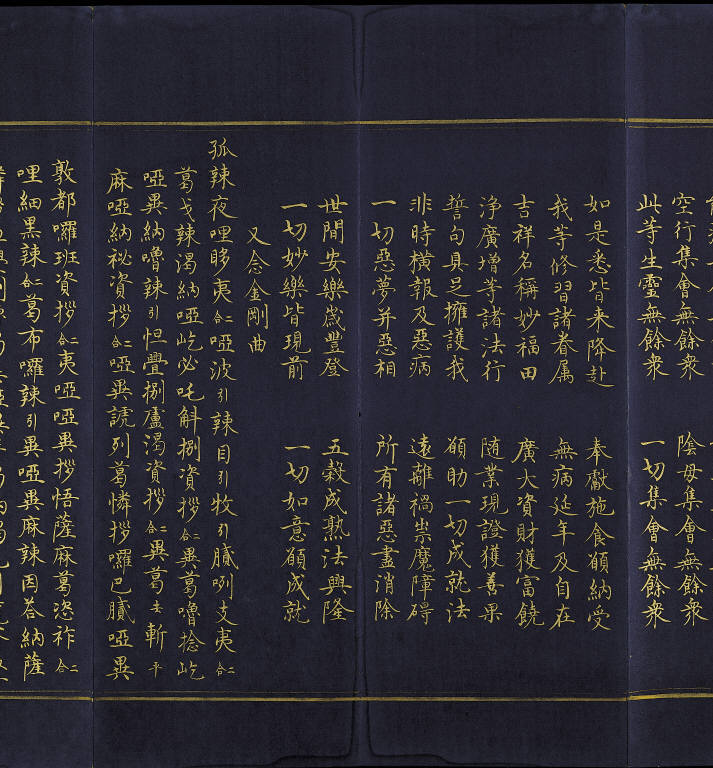 空行集會無餘衆　陰母集會無餘衆
此等生靈無餘衆　一切集會無餘衆
如是悉皆来降赴　奉獻施食願納受
我等修習諸眷属　無病延年及自在
吉祥名稱妙福田　廣大資財獲富饒
浄廣增等諸法行　随業現證獲善果
誓句具足擁護我　願助一切成就法
非時橫報及惡病　遠離禍祟魔障碍
一切惡夢并惡相　所有諸惡盡消除
世間安樂歲豐登　五穀成熟法興隆
一切妙樂皆現前　一切如意願成就
又念金剛曲
孤辣夜哩眵夷二合啞波引辣目引牧引膩咧支夷二合
葛戈辣渴納啞屹必吒斛捌資拶二合畢葛嚕捻屹
啞畢納嚕辣引怛疊捌廬渴資拶二合畢葛去斬平
麻啞納祕資拶二合啞畢謊列葛憐拶囉巴膩啞畢
敦都囉班資拶二合夷啞啞畢拶悟薩麻葛恣祚二合
哩細黑辣二合葛布囉辣引畢啞畢麻辣因荅納薩